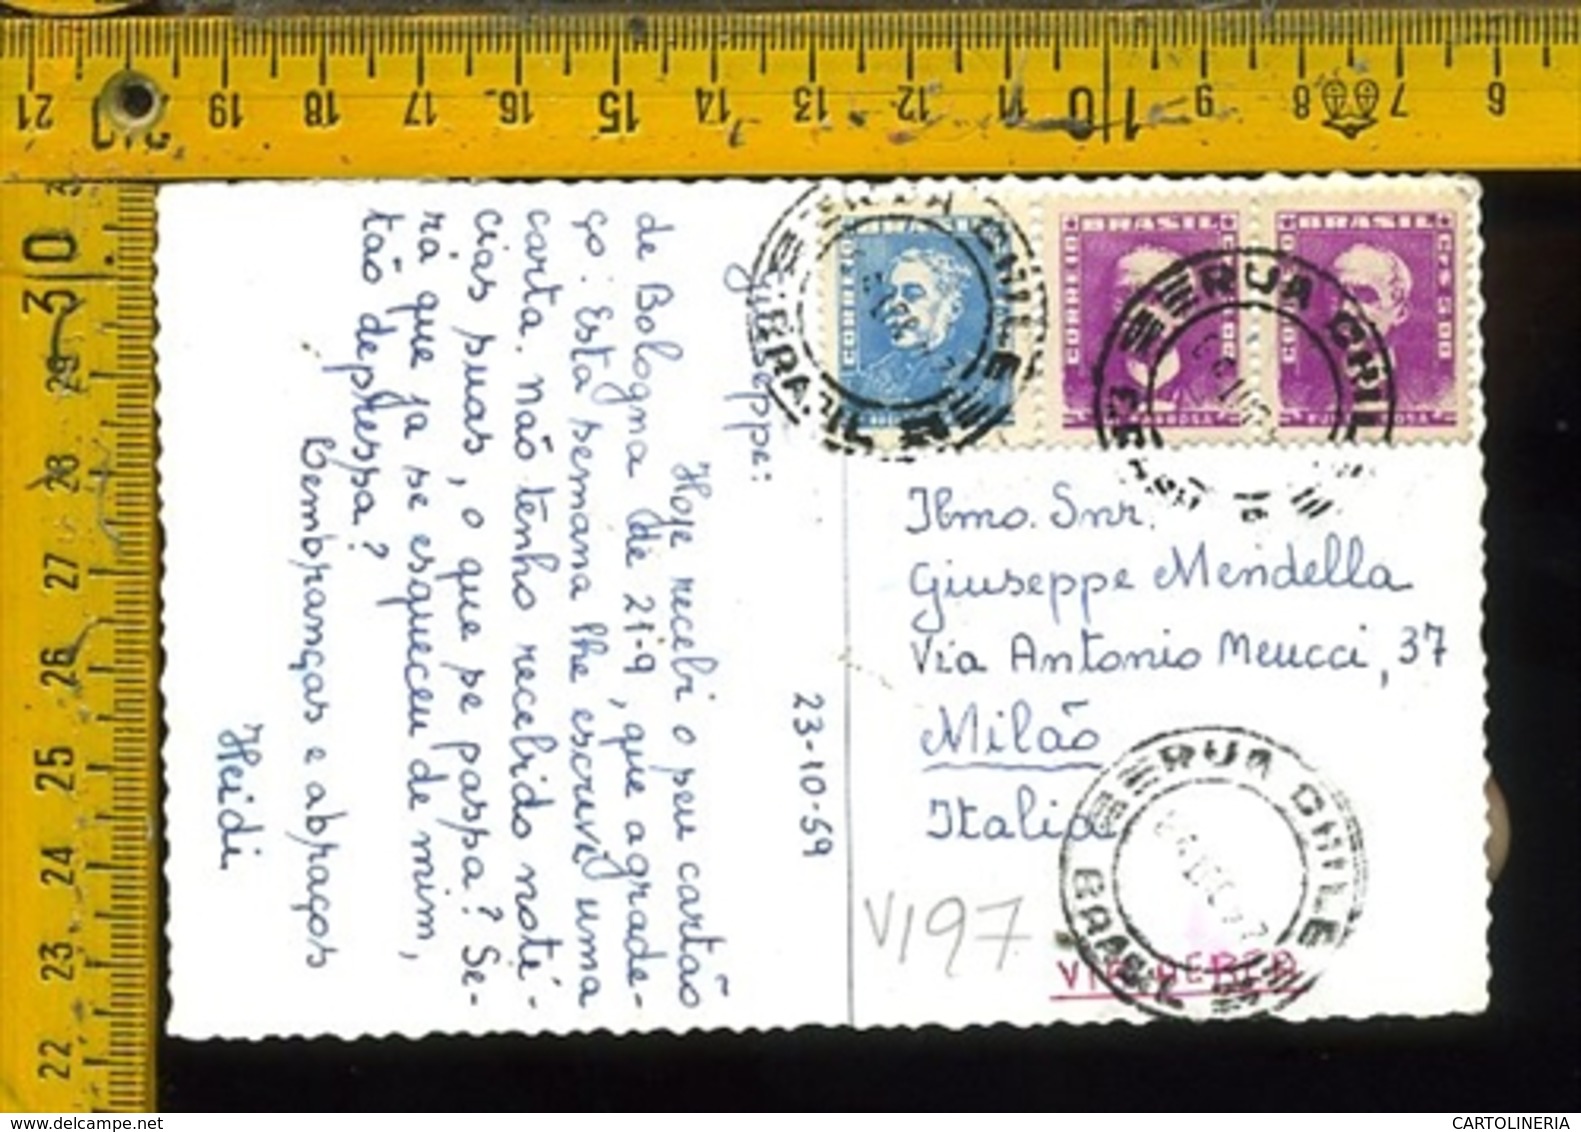 23-10-59
Giuseppe:
Hoje recebi o seu cartão
de Bologna de 21-9, que agrade-
ço. Esta semana lhe escrevi uma
carta. Não tenho recebido notí-
cias suas, o que se passa? Se-
rá que ja se esqueceu de mim,
tão depressa?
Lembranças e abraços
Heidi
BRASIL
CORREIO
BRASIL
CORREIO
BRASIL
CORREIO
CR$ 5,00
Ilmo. Snr.
Giuseppe Mendella
Via Antonio Meucci, 37
Milão
Italia
V197
VIA AEREA
BRASIL
21 20 19 18 17 16 15 14 13 12 11 10 9 8 7 6
30
29
28
27
26
25
24
23
22
delcampe.net
CARTOLINERIA